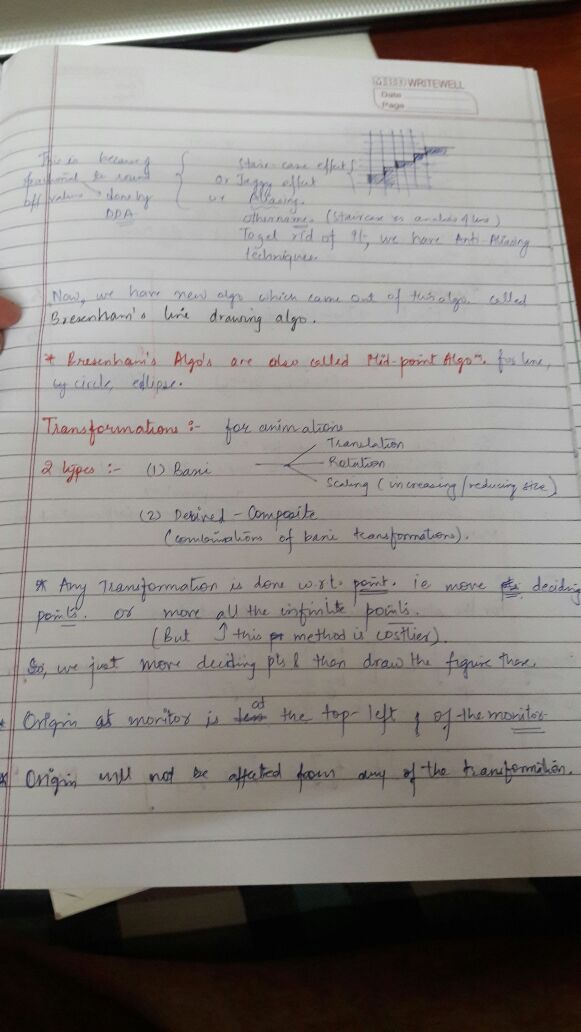 CLASS WRITEWELL
Date
Page
This is because of
fractional to round
off values done by
DDA.
Stair-case effect
or Jaggy effect
or Aliasing.
other names (Staircase or analas of line)
To get rid of it, we have Anti-Aliasing
techniques.
Now, we have new algo which came out of this algo. called
Bresenham's line drawing algo.
* Bresenham's Algo's are also called Mid-point Algoᵐ. for line,
by circle, eclipse.
Transformations :- for animations
2 types :- (1) Basic
Translation
Rotation
Scaling (increasing/reducing size)
(2) Derived - Composite
(combinations of basic transformations).
* Any Transformation is done w.r.t. point. ie move deciding
points. or move all the infinite points.
(But ↑ this method is costlier).
So, we just move deciding pts & then draw the figure there.
* Origin at monitor is at the top-left of the monitor
* Origin will not be affected from any of the transformation.